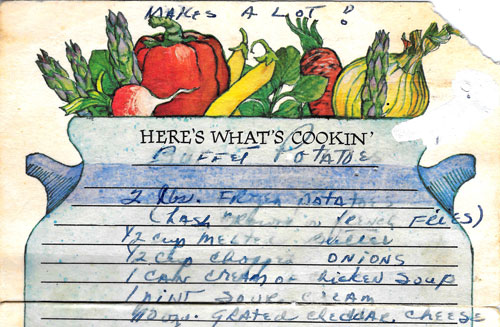 MAKES A LOT!
HERE'S WHAT'S COOKIN'
BUFFET POTATOE
2 lbs. FROZEN POTATOES
(hash browns or french FRIES)
1/2 cup MELTED BUTTER
1/2 cup chopped ONIONS
1 CAN CREAM OF chicken SOUP
1 PINT SOUR CREAM
10 oz. GRATED cheddar cheese